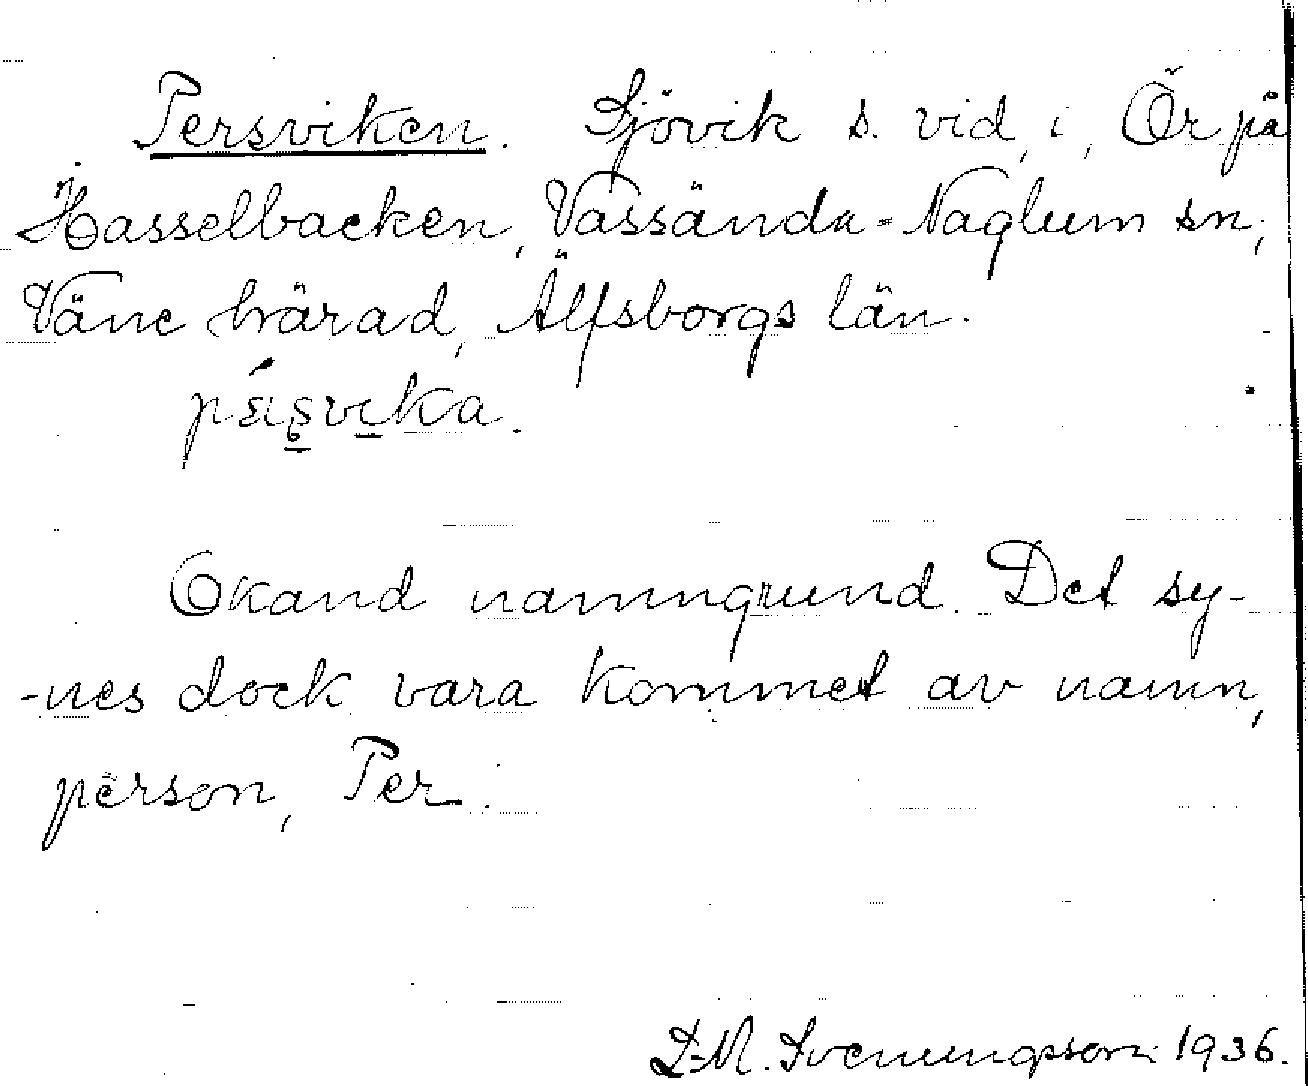 Persviken. Sjövik s. vid, i, Ör på
Hasselbacken, Vassända-Naglum sn,
Väne härad, Älfsborgs län.
Okänd namngrund. Det sy-
-nes dock vara kommet av namn,
person, Per.
D-M. Svenungsson 1936.